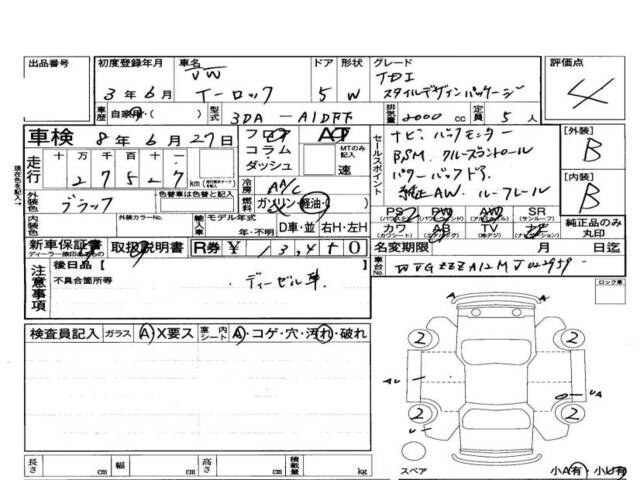 出品番号 初度登録年月 車名 ドア 形状 グレード 評価点
VW
3年6月 T-ロック 5 W TDI
スタイルデザインパッケージ 4
車歴 自家用・( ) 型式 3DA-A1DFF 排気量 2000 cc 定員 5 人
車検 8年6月27日 フロア AT
コラム
ダッシュ MTのみ記入 速
走行 十 万 千 百 十 一
2 7 5 2 7 km
現在色を記入→
セールスポイント
ナビ・バックモニター
BSM、クルーズコントロール
パワーバックドア
純正AW、ルーフレール
[外装] B
[内装] B
冷房 AA/C
外装色 ブラック 色替車は色替と記入 燃料 ガソリン・軽油・( )
内装色 外装カラーNo. 輸入車 モデル年式 年・不明 D車・並 右H・左H
PS PW AW SR
(サンルーフ)
カワ AB TV ナビ
(カワシート) (エアバッグ)
純正品のみ丸印
新車保証書 取扱説明書 R券 ¥ 13,4
ディーラー捺印あるもの
名変期限 月 日迄
注意事項 後日品[ ]
不具合箇所等 ・ディーゼル車
車台No. WVGZZZA1ZM
ロック車
検査員記入 ガラス A・X要ス 室内シート A・コゲ・穴・汚れ・破れ
2 2
AU UA
2 2
U
スペア 小A有・小U有
長さ cm 幅 cm 高さ cm 積載量 kg